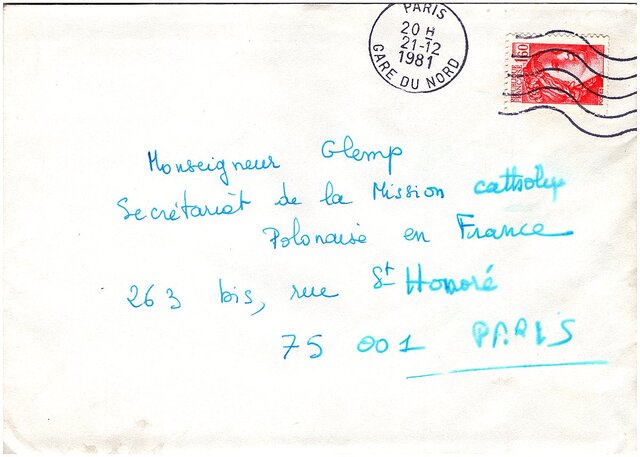 PARIS
20 H
21-12
1981
GARE DU NORD
1,60
Monseigneur Glemp
Secrétariat de la Mission cattsolique
Polonaise en France
263 bis, rue St Honoré
75 001 PARIS